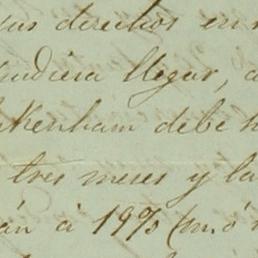 sus derechos en
pudiera llegar, a
Pakenham debe
tres meses y la
án á 19% (m. ó